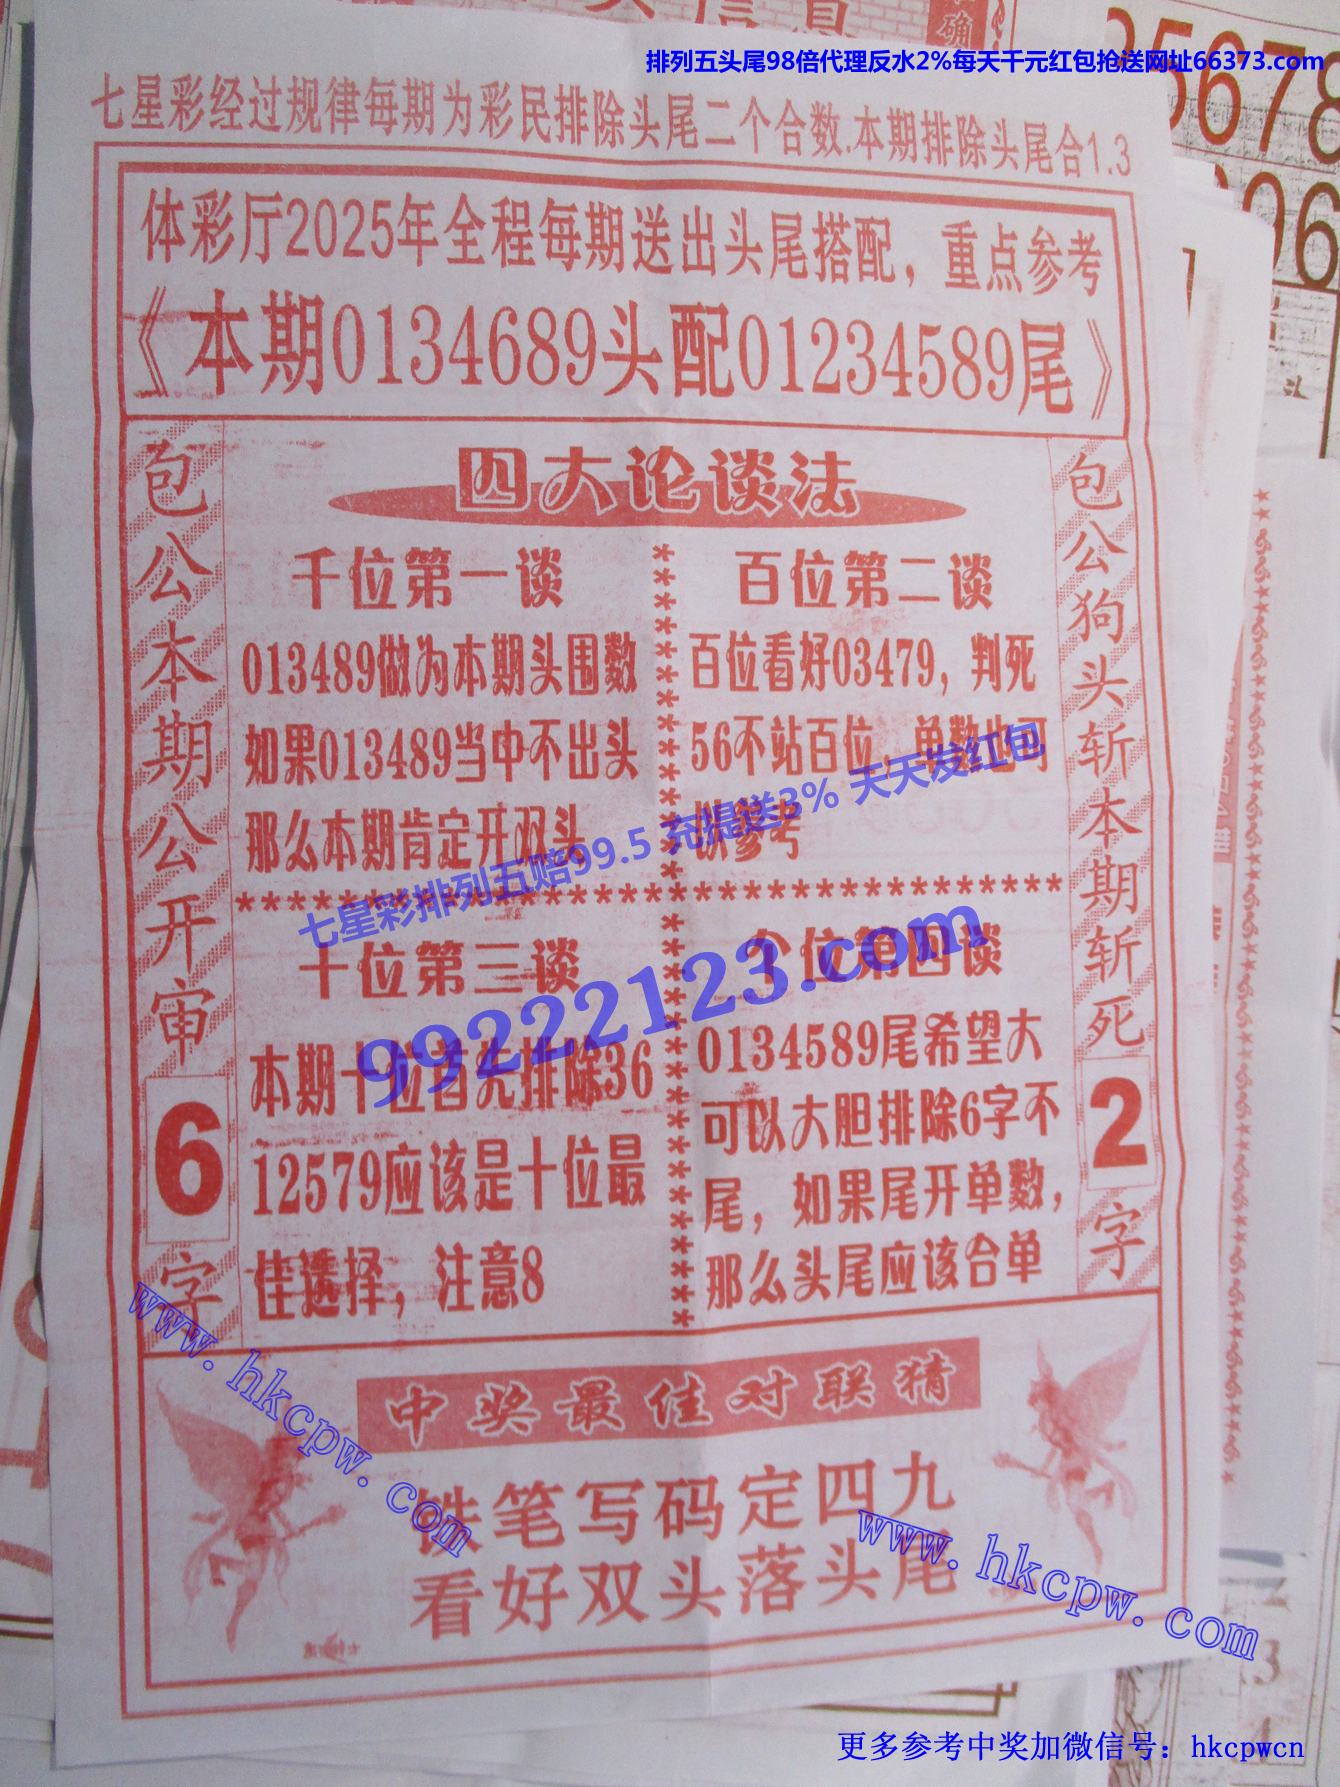 排列五头尾98倍代理反水2%每天千元红包抢送网址66373.com
七星彩经过规律每期为彩民排除头尾二个合数.本期排除头尾合1.3
体彩厅2025年全程每期送出头尾搭配，重点参考
《本期0134689头配01234589尾》
包公本期公开审6字
四大论谈法
千位第一谈
013489做为本期头围数
如果013489当中不出头
那么本期肯定开双头
百位第二谈
百位看好03479，判死
56不站百位，单数也可
以参考
七星彩排列五赔99.5 充提送3% 天天发红包
99222123.com
十位第三谈
本期十位首先排除36
12579应该是十位最
佳选择，注意8
个位第四谈
0134589尾希望大
可以大胆排除6字不
尾，如果尾开单数，
那么头尾应该合单
包公狗头斩本期斩死2字
中奖最佳对联猜
铁笔写码定四九
看好双头落头尾
www.hkcpw.com
www.hkcpw.com
更多参考中奖加微信号：hkcpwcn